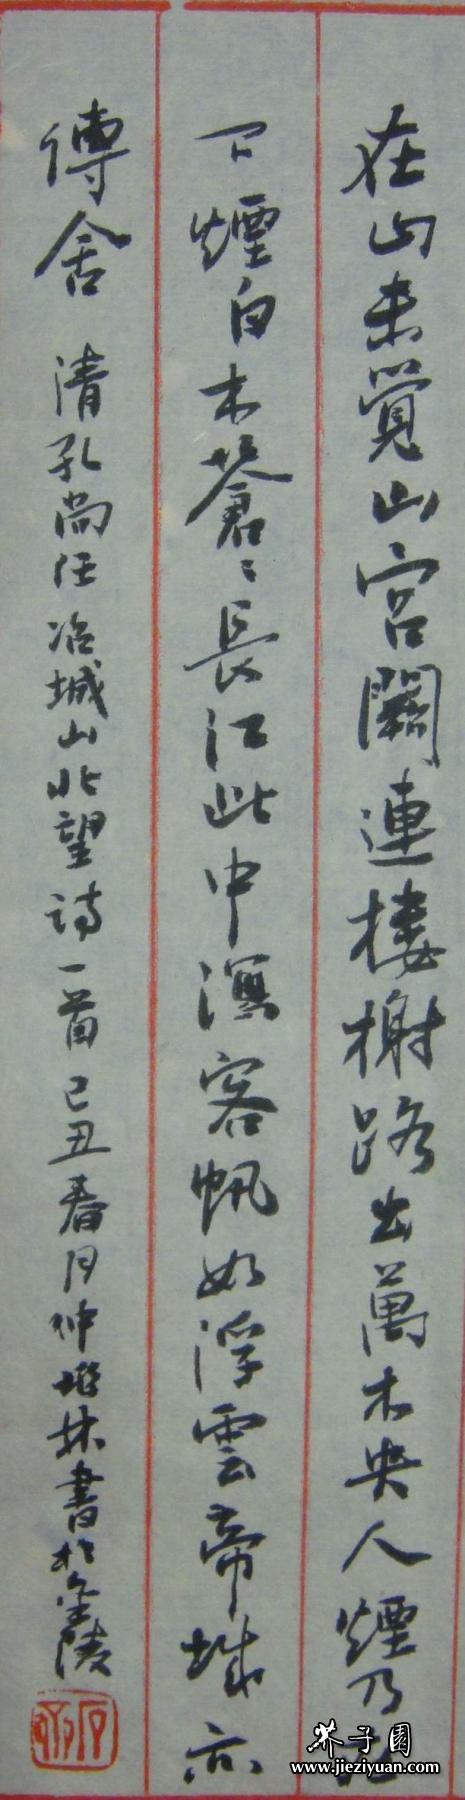 在山未覺山宮闕連樓榭路出萬木央人煙乃在
下煙白木蒼〻長江此中漏客帆如浮雲帝城亦
傳舍 清孔尚任冶城山北望詩一首己丑春月仲堆林書於金陵
芥子園
www.jieziyuan.com